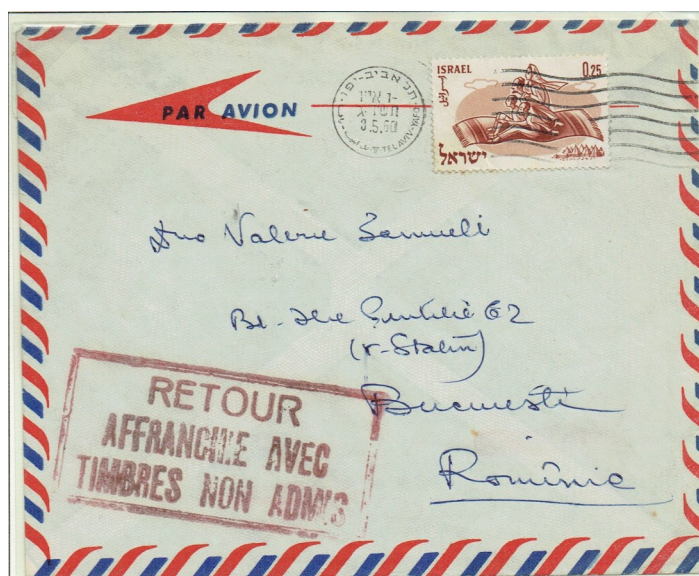 PAR AVION
תל אביב-יפו
3.5.60
TEL AVIV-YAFO
ISRAEL 0.25
ישראל
Valerie Samueli
62
(v-Stalin)
Bucureşti
Romînia
RETOUR
AFFRANCHIE AVEC
TIMBRES NON ADMIS